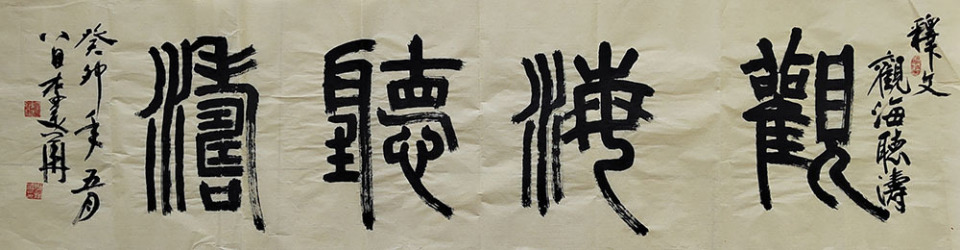 釋文
觀海聽濤
觀海聽濤
癸卯年五月
八日李